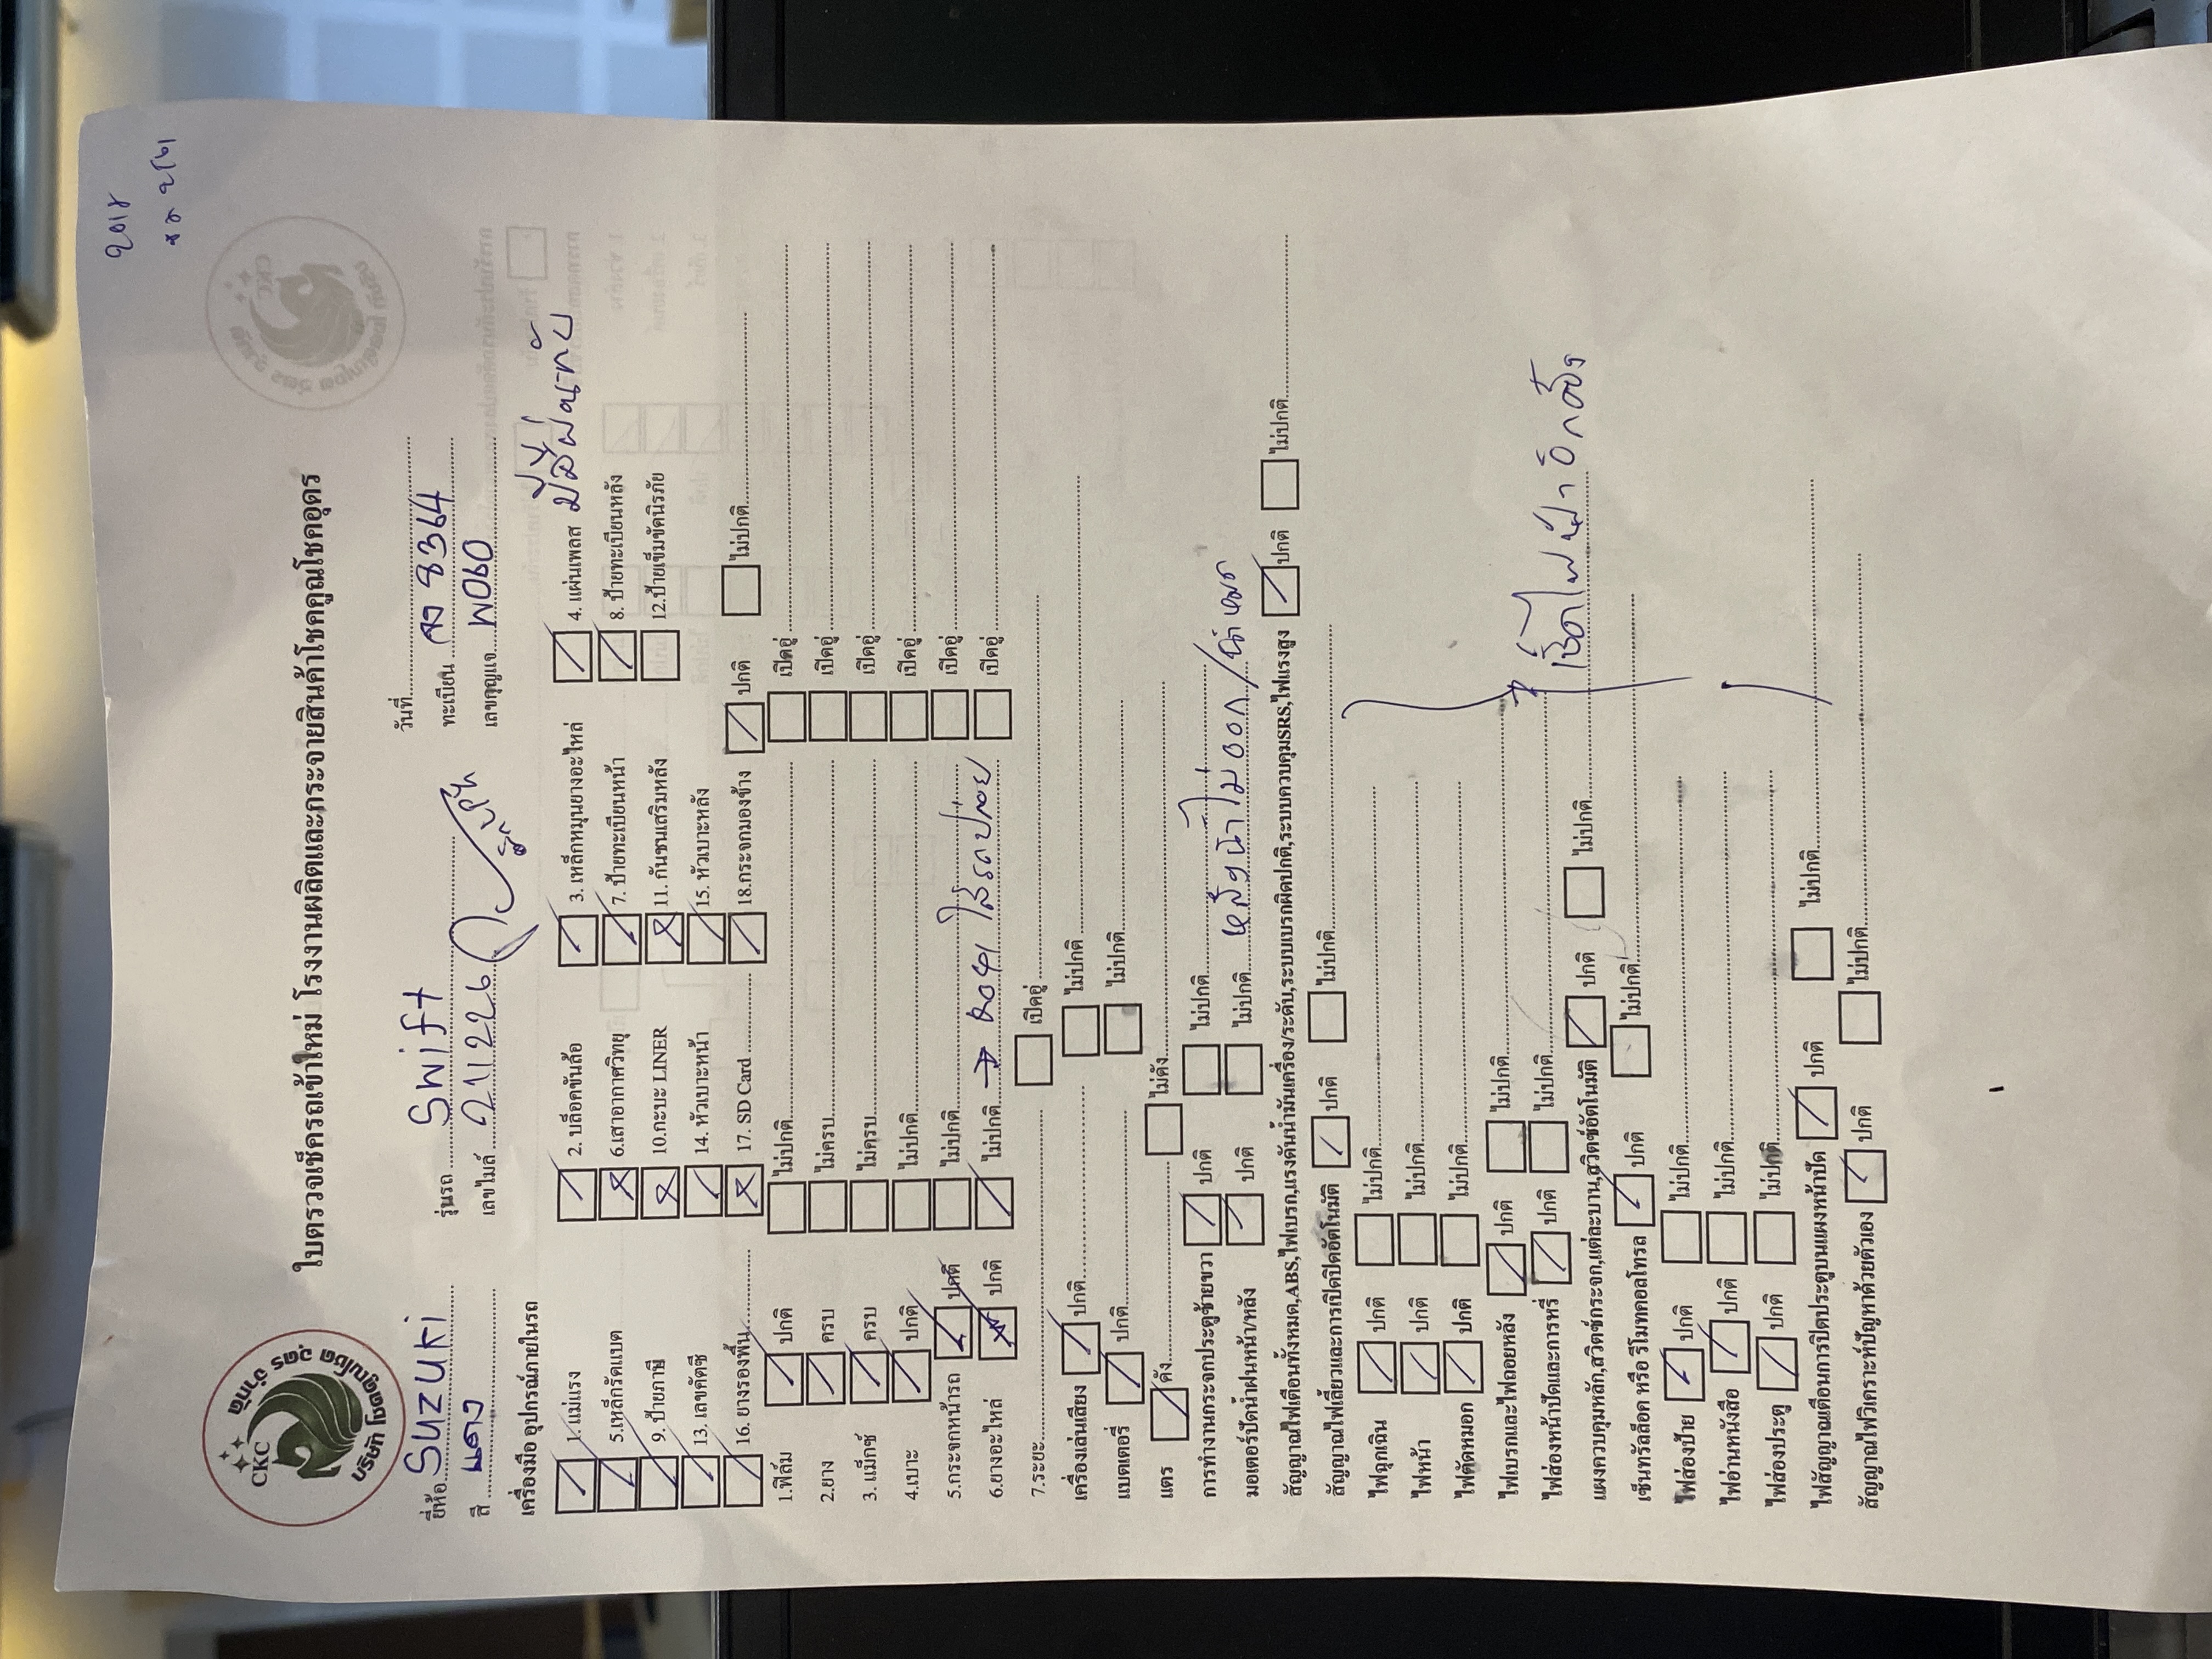 2018
CKC
บริษัท โชคคูณโชค อุดร จำกัด
ใบตรวจเช็ครถเข้าใหม่ โรงงานผลิตและกระจายสินค้าโชคคูณโชคอุดร
วันที่
ยี่ห้อ Suzuki รุ่นรถ Swift ทะเบียน 8364
สี แดง เลขไมล์ 211226 เลขกุญแจ W060
เครื่องมือ อุปกรณ์ภายในรถ
1.แม่แรง 2. บล็อคขันล้อ 3. เหล็กหมุนยางอะไหล่ 4. แผ่นเพลส
5.เหล็กรัดแบต 6.เสาอากาศวิทยุ 7. ป้ายทะเบียนหน้า 8. ป้ายทะเบียนหลัง
9. ป้ายภาษี 10.กระบะ LINER 11. กันชนเสริมหลัง 12.ป้ายเข็มขัดนิรภัย
13. เลขคัดซี 14. หัวเบาะหน้า 15. หัวเบาะหลัง
16. ยางรองพื้น 17. SD Card 18.กระจกมองข้าง ปกติ ไม่ปกติ
1.ฟิล์ม ปกติ ไม่ปกติ เปิดอู่
2.ยาง ครบ ไม่ครบ เปิดอู่
3. แม็กซ์ ครบ ไม่ครบ เปิดอู่
4.เบาะ ปกติ ไม่ปกติ เปิดอู่
5.กระจกหน้ารถ ปกติ ไม่ปกติ เปิดอู่
6.ยางอะไหล่ ปกติ ไม่ปกติ → เปิดอู่
7.ระยะ เปิดอู่
เครื่องเล่นเสียง ปกติ ไม่ปกติ
แบตเตอรี่ ปกติ ไม่ปกติ
แตร ดัง ไม่ดัง
การทำงานกระจกประตูซ้ายขวา ปกติ ไม่ปกติ
มอเตอร์ปัดน้ำฝนหน้า/หลัง ปกติ ไม่ปกติ หลังน้ำไม่ออก/น้ำหมด
สัญญาณไฟเตือนทั้งหมด,ABS,ไฟเบรก,แรงดันน้ำมันเครื่อง/ระดับ,ระบบเบรกผิดปกติ,ระบบควบคุมSRS,ไฟแรงสูง ปกติ ไม่ปกติ
สัญญาณไฟเลี้ยวและการเปิดปิดอัตโนมัติ ปกติ ไม่ปกติ
ไฟฉุกเฉิน ปกติ ไม่ปกติ
ไฟหน้า ปกติ ไม่ปกติ
ไฟตัดหมอก ปกติ ไม่ปกติ
ไฟเบรกและไฟถอยหลัง ปกติ ไม่ปกติ
ไฟส่องหน้าปัดและการหรี่ ปกติ ไม่ปกติ
แผงควบคุมหลัก,สวิตช์กระจก,แต่ละบาน,สวิตช์อัตโนมัติ ปกติ ไม่ปกติ
เซ็นทรัลล็อค หรือ รีโมทคอลโทรล ปกติ ไม่ปกติ
ไฟส่องป้าย ปกติ ไม่ปกติ
ไฟอ่านหนังสือ ปกติ ไม่ปกติ
ไฟส่องประตู ปกติ ไม่ปกติ
ไฟสัญญาณเตือนการปิดประตูบนแผงหน้าปัด ปกติ ไม่ปกติ
สัญญาณไฟวิเคราะห์ปัญหาด้วยตัวเอง ปกติ ไม่ปกติ